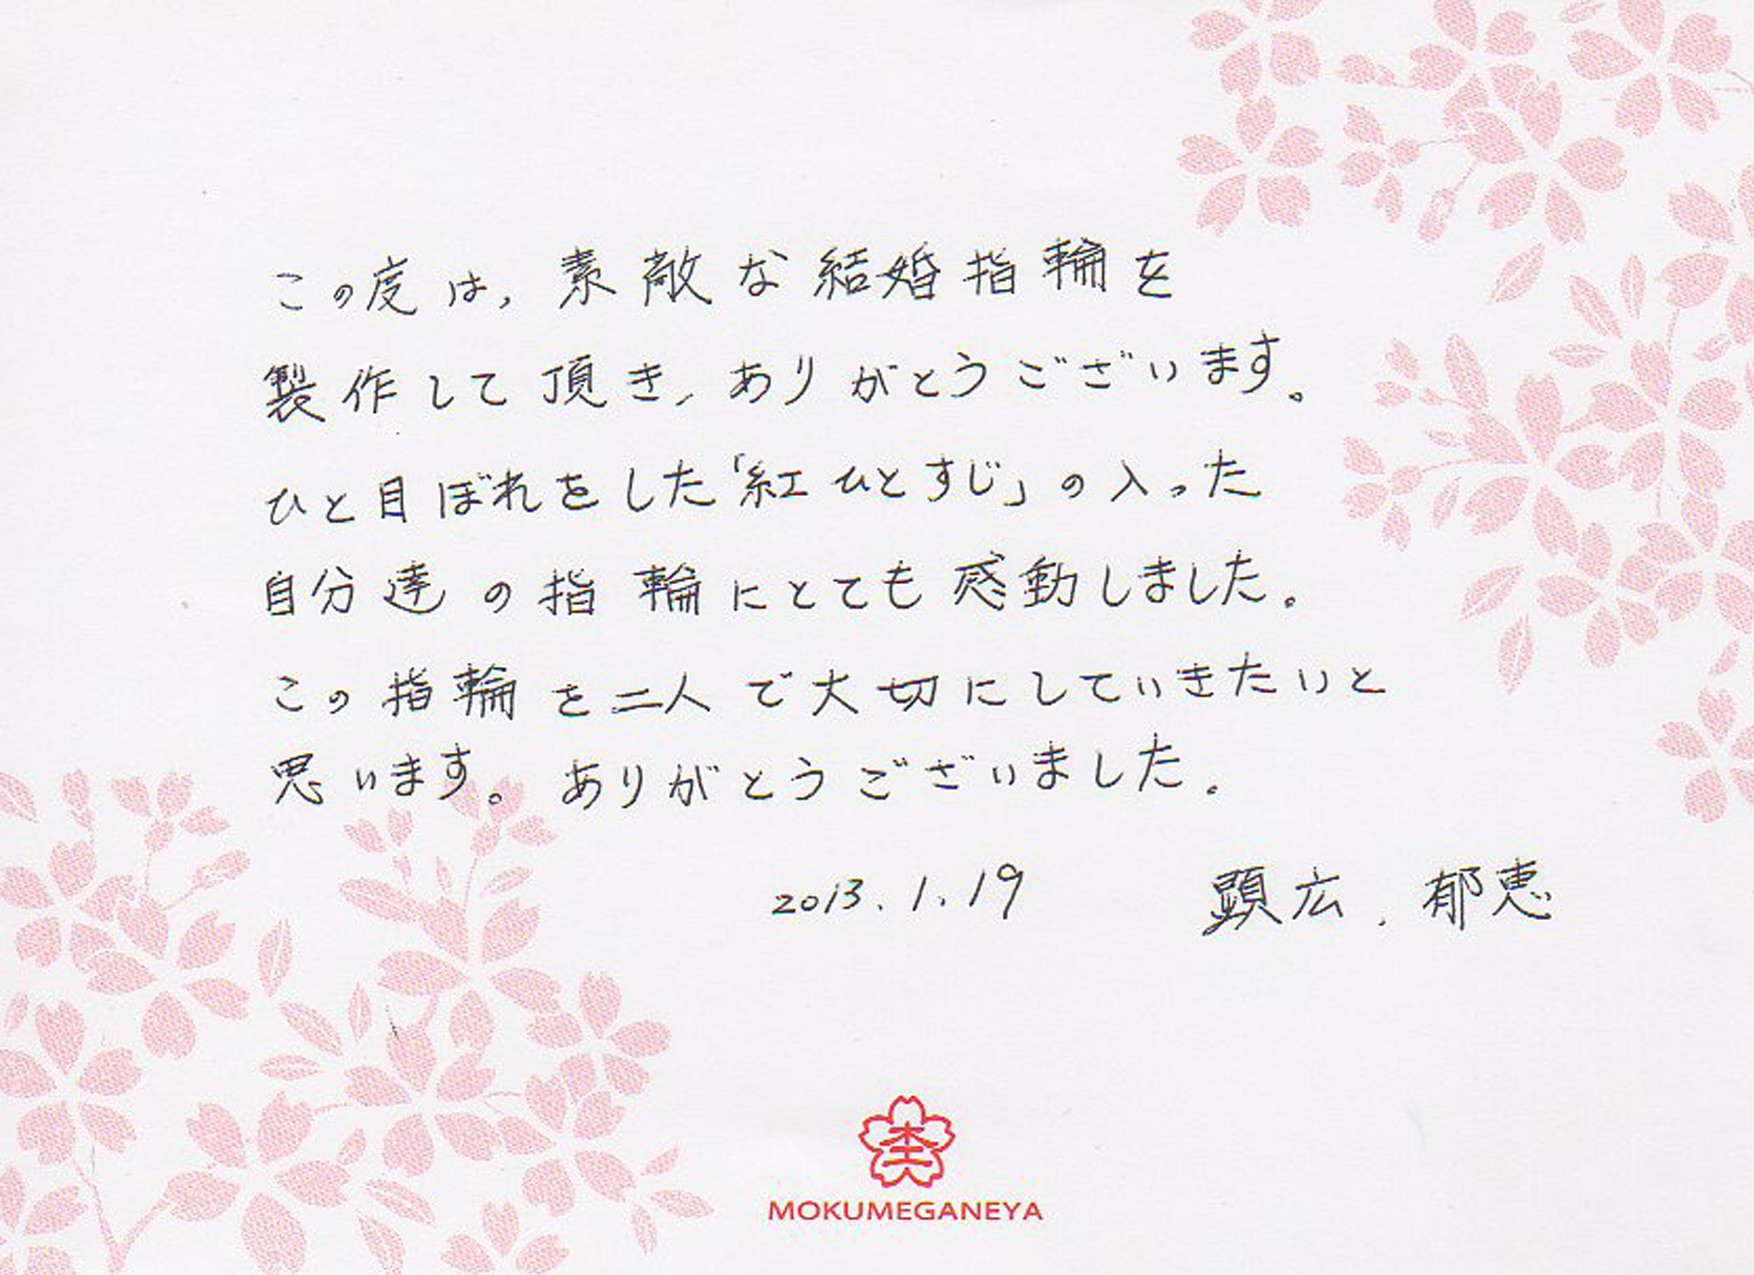 この度は、素敵な結婚指輪を
製作して頂き、ありがとうございます。
ひと目ぼれをした「紅ひとすじ」の入った
自分達の指輪にとても感動しました。
この指輪を二人で大切にしていきたいと
思います。ありがとうございました。
2013.1.19 顕広、郁恵
MOKUMEGANEYA